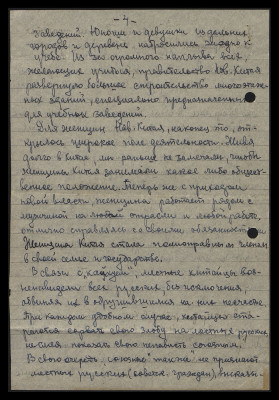 - 4 -
заведений. Юноши и девушки из дальних
городов и деревень набросились жадно к
учебе. Из-за огромного наплыва всех
желающих учиться, правительство Нов. Китая
развернуло большое строительство многоэтаж-
ных зданий, специально предназначенных
для учебных заведений.
Для женщин Нов. Китая, наконец то, от-
крылось широкое поле деятельности. Живя
долго в Китае, мы раньше не замечали, чтобы
женщины Китая занимали какое либо общест-
венное положение. Теперь же с приходом
новой власти, женщина работает рядом с
мужчиной на любой отрасли и любой работе,
отлично справляясь со своими обязанностями.
Женщина Китая стала полноправным членом
в своей семье и государстве.
В связи с местные китайцы воз-
ненавидели всех русских, без исключения,
обвиняя их в обрушившимся на них несчастье.
При каждом удобном случае, китайцы ста-
рались сорвать свою злобу на местных русских,
не смея показать свою ненависть советским.
В свою очередь, союзные не признают
местных русских (советск. граждан), высказы-